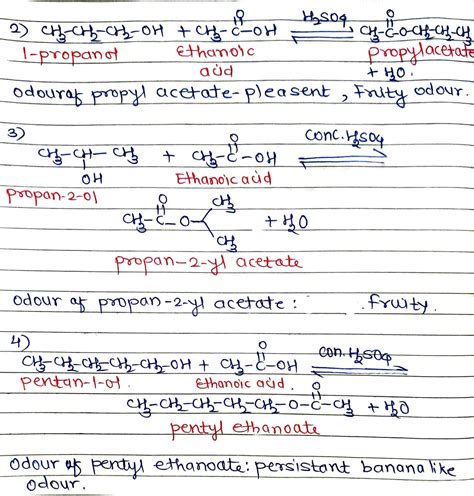 2) CH₃-CH₂-CH₂-OH + CH₃-C-OH ⇌ CH₃-C-O-CH₂-CH₂-CH₃
O H₂SO₄ O
1-propanol Ethanoic acid propylacetate
+ H₂O.
odour of propyl acetate-pleasent, fruity odour.
3)
O conc. H₂SO₄
CH₃-CH-CH₃ + CH₃-C-OH ⇌
OH Ethanoic acid
propan-2-ol
O CH₃
CH₃-C-O- + H₂O
CH₃
propan-2-yl acetate
odour of propan-2-yl acetate: fruity.
4)
O con. H₂SO₄
CH₃-CH₂-CH₂-CH₂-CH₂-OH + CH₃-C-OH ⇌
pentan-1-ol. Ethanoic acid.
O
CH₃-CH₂-CH₂-CH₂-CH₂-O-C-CH₃ + H₂O
pentyl ethanoate
odour of pentyl ethanoate: persistant banana like
odour.